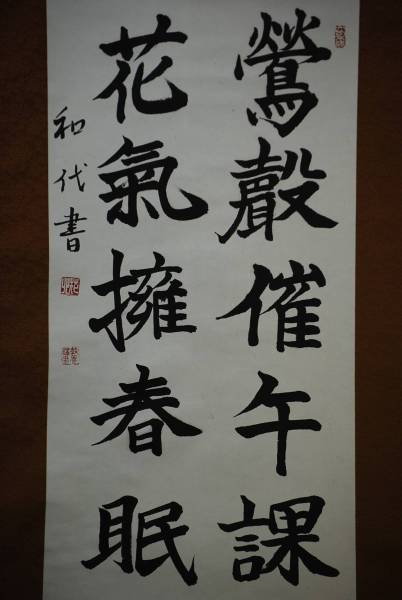 鶯聲催午課
花氣擁春眠
和代書